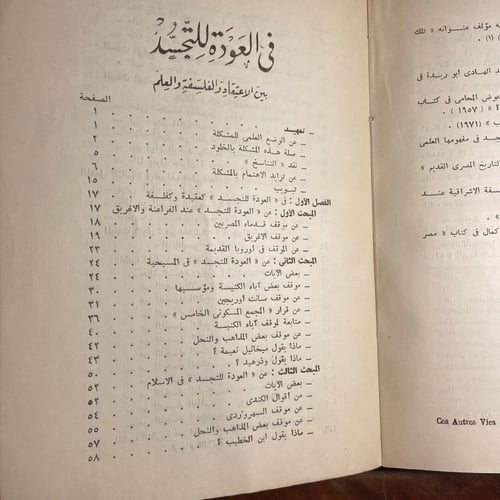 في العودة للتجسد
بين الاعتقاد والفلسفة والعلم
الصفحة
ـ تمهيد ١
ـ عن الوضع العلمى للمشكلة ١
ـ صلة هذه المشكلة بالخلود ٣
ـ نقد « التناسخ » ٥
ـ عن تزايد الاهتمام بالمشكلة ٦
ـ تبويب ١٥
الفصل الأول : فى « العودة للتجسد » كعقيدة وكفلسفة ١٧
المبحث الأول : عن « العودة للتجسد » عند الفراعنة والاغريق ١٧
ـ عن موقف قدماء المصريين ١٨
ـ عن موقف الاغريق ١٩
ـ عن الموقف فى أوروبا القديمة ٢٣
المبحث الثانى : عن « العودة للتجسد » فى المسيحية ٢٤
ـ بعض الآيات ٢٤
ـ موقف بعض آباء الكنيسة ومؤسسيها ٣٠
ـ عن موقف سانت اوريجين ٣١
ـ عن قرار « المجمع المسكونى الخامس » ٣٦
ـ متابعة لموقف آباء الكنيسة
ـ عن موقف بعض المذاهب والنحل ٤٠
ـ ماذا يقول ميخائيل نعيمة ؟ ٤٢
ـ ماذا يقول وذرهيد ؟ ٤٣
المبحث الثالث : عن « العودة للتجسد » فى الاسلام ٥٠
ـ بعض الآيات ٥٢
ـ من أقوال الكندى ٥٢
ـ عن موقف السهروردى ٥٤
ـ عن موقف بعض المذاهب والنحل ٥٥
ـ ماذا يقول ابن الخطيب ؟ ٥٧
٥٨
ه مؤلف عنوانه « تلك
(١) .
د الهادى ابو ريدة فى
عوض المحامى فى كتاب
( ١٩٥٧ ) .
ب » (١٩٧١) .
جسد فى مفهومها العلمى
لتاريخ المصرى القديم »
سفة الاشراقية عند
كمال فى كتاب « مصر
Ces Autres Vies